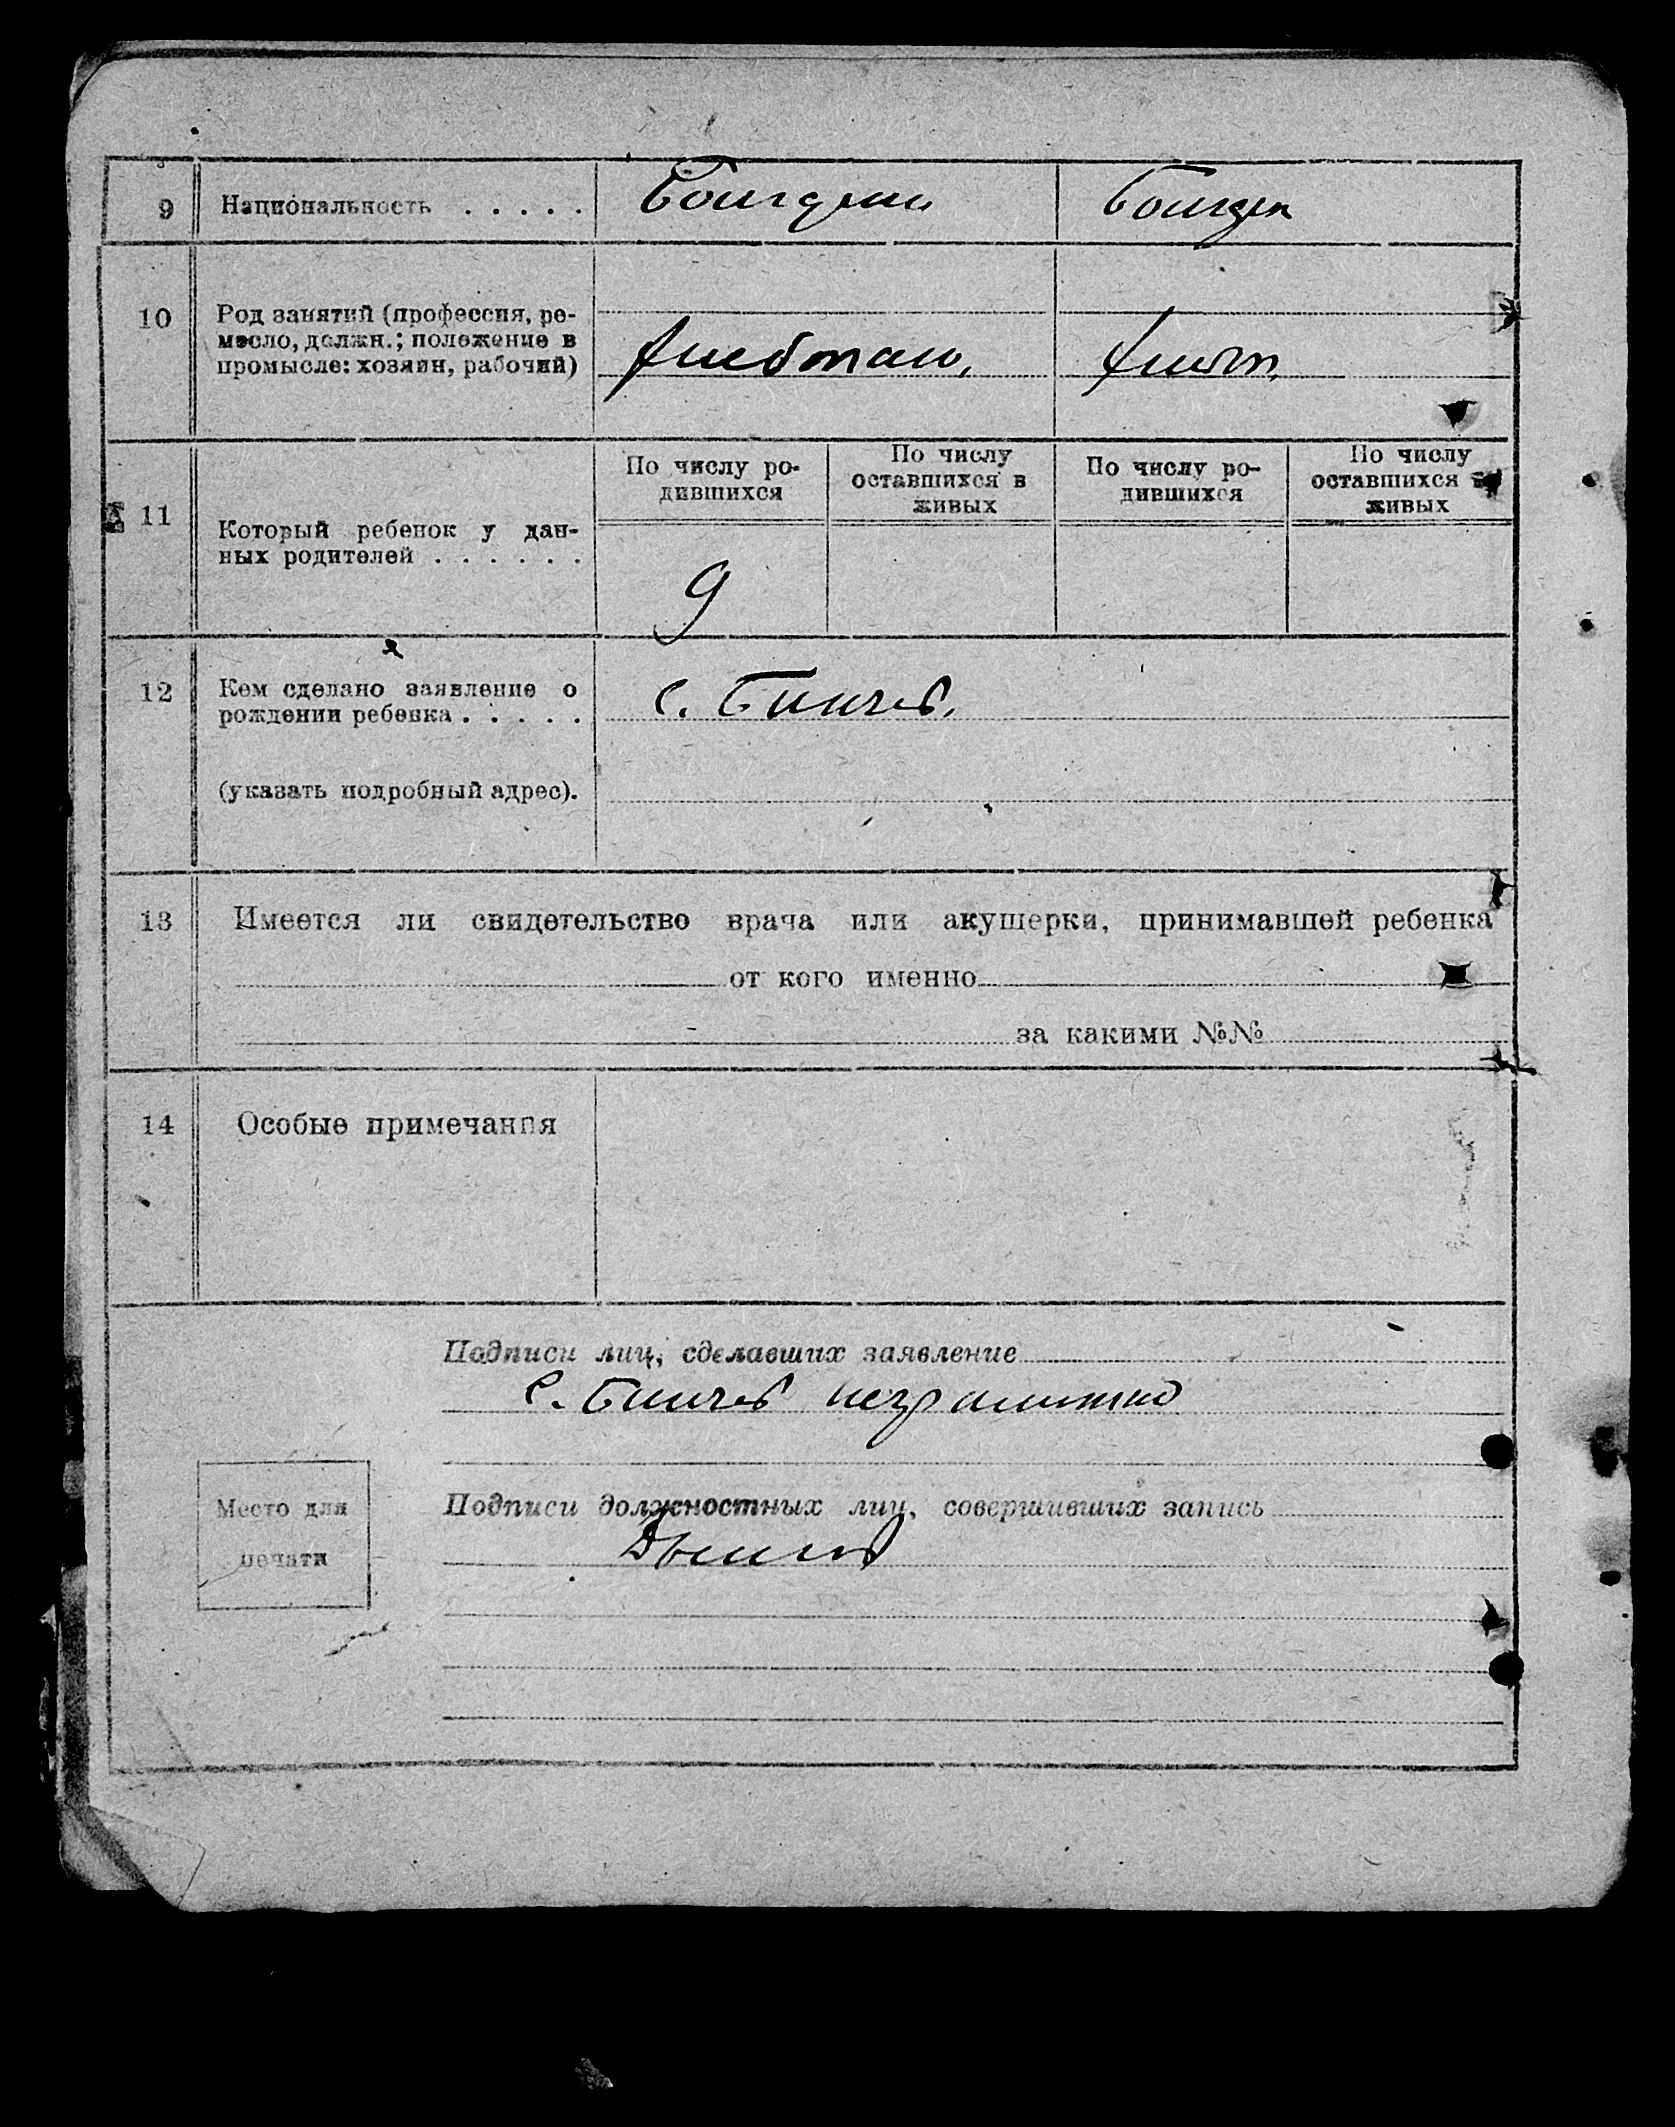 9 Национальность . . . . .
10 Род занятий (профессия, ре-
месло, должн.; положение в
промысле: хозяин, рабочий)
По числу ро-
дившихся
По числу
оставшихся в
живых
По числу ро-
дившихся
По числу
оставшихся в
живых
11 Который ребенок у дан-
ных родителей . . . . . .
9
12 Кем сделано заявление о
рождении ребенка . . . . .
с.
(указать подробный адрес).
13 Имеется ли свидетельство врача или акушерки, принимавшей ребенка
от кого именно
за какими №№
14 Особые примечания
Подписи лиц, сделавших заявление
С. неграмотный
Место для
печати
Подписи должностных лиц, совершивших запись